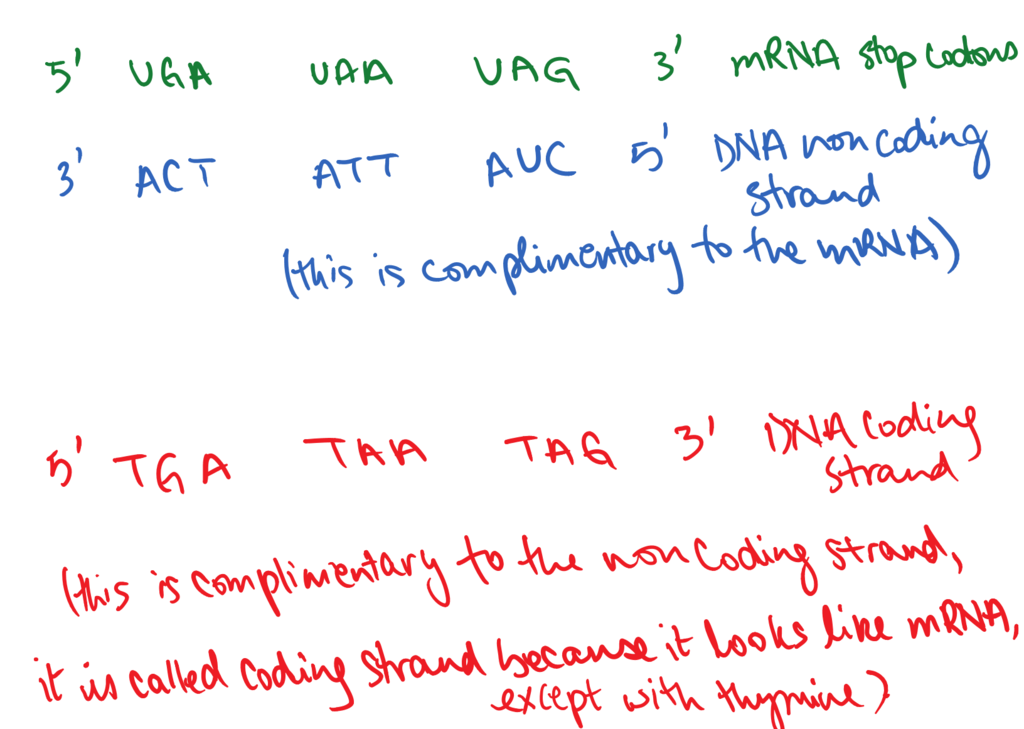 5' UGA UAA UAG 3' mRNA stop codons
3' ACT ATT AUC 5' DNA non coding
strand
(this is complimentary to the mRNA)
5' TGA TAA TAG 3' DNA coding
strand
(this is complimentary to the non coding strand,
it is called coding strand because it looks like mRNA,
except with thymine)